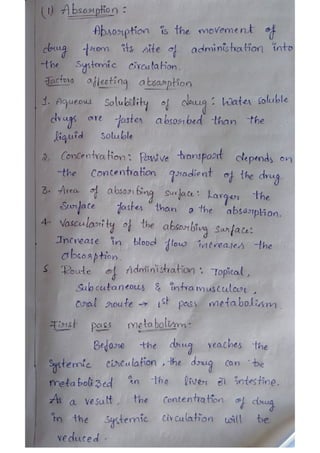 (1) Absorption :
Absorption is the movement of
drug from its site of administration into
the Systemic circulation.
Factors affecting absorption
1. Aqueous Solubility of drug : Water soluble
drugs are faster absorbed than the
liquid soluble
2. Concentration : Passive transport depends on
the concentration gradient of the drug.
3. Area of absorbing surface : Larger the
Surface faster than a the absorption.
4. Vascularity of the absorbing surface:
Increase in blood flow increases the
absorption.
5. Route of Administration : Topical,
Subcutaneous & intramuscular,
Oral route → 1st pass metabolism
First pass metabolism-
Before the drug reaches the
Systemic circulation, the drug can be
metabolized in the liver or intestine.
As a result, the concentration of drug
in the Systemic circulation will be
reduced.